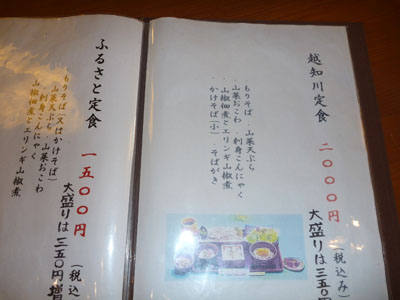 越知川定食
二〇〇〇円
(税込み)
大盛りは三五〇円
・もりそば ・山菜天ぷら
・山菜おこわ ・刺身こんにゃく
・山椒佃煮とエリンギ山椒煮
・かけそば(小) ・そばがき
ふるさと定食
一五〇〇円
(税込
大盛りは三五〇円増
・もりそば(又はかけそば)
・山菜天ぷら ・山菜おこわ
・刺身こんにゃく
・山椒佃煮とエリンギ山椒煮